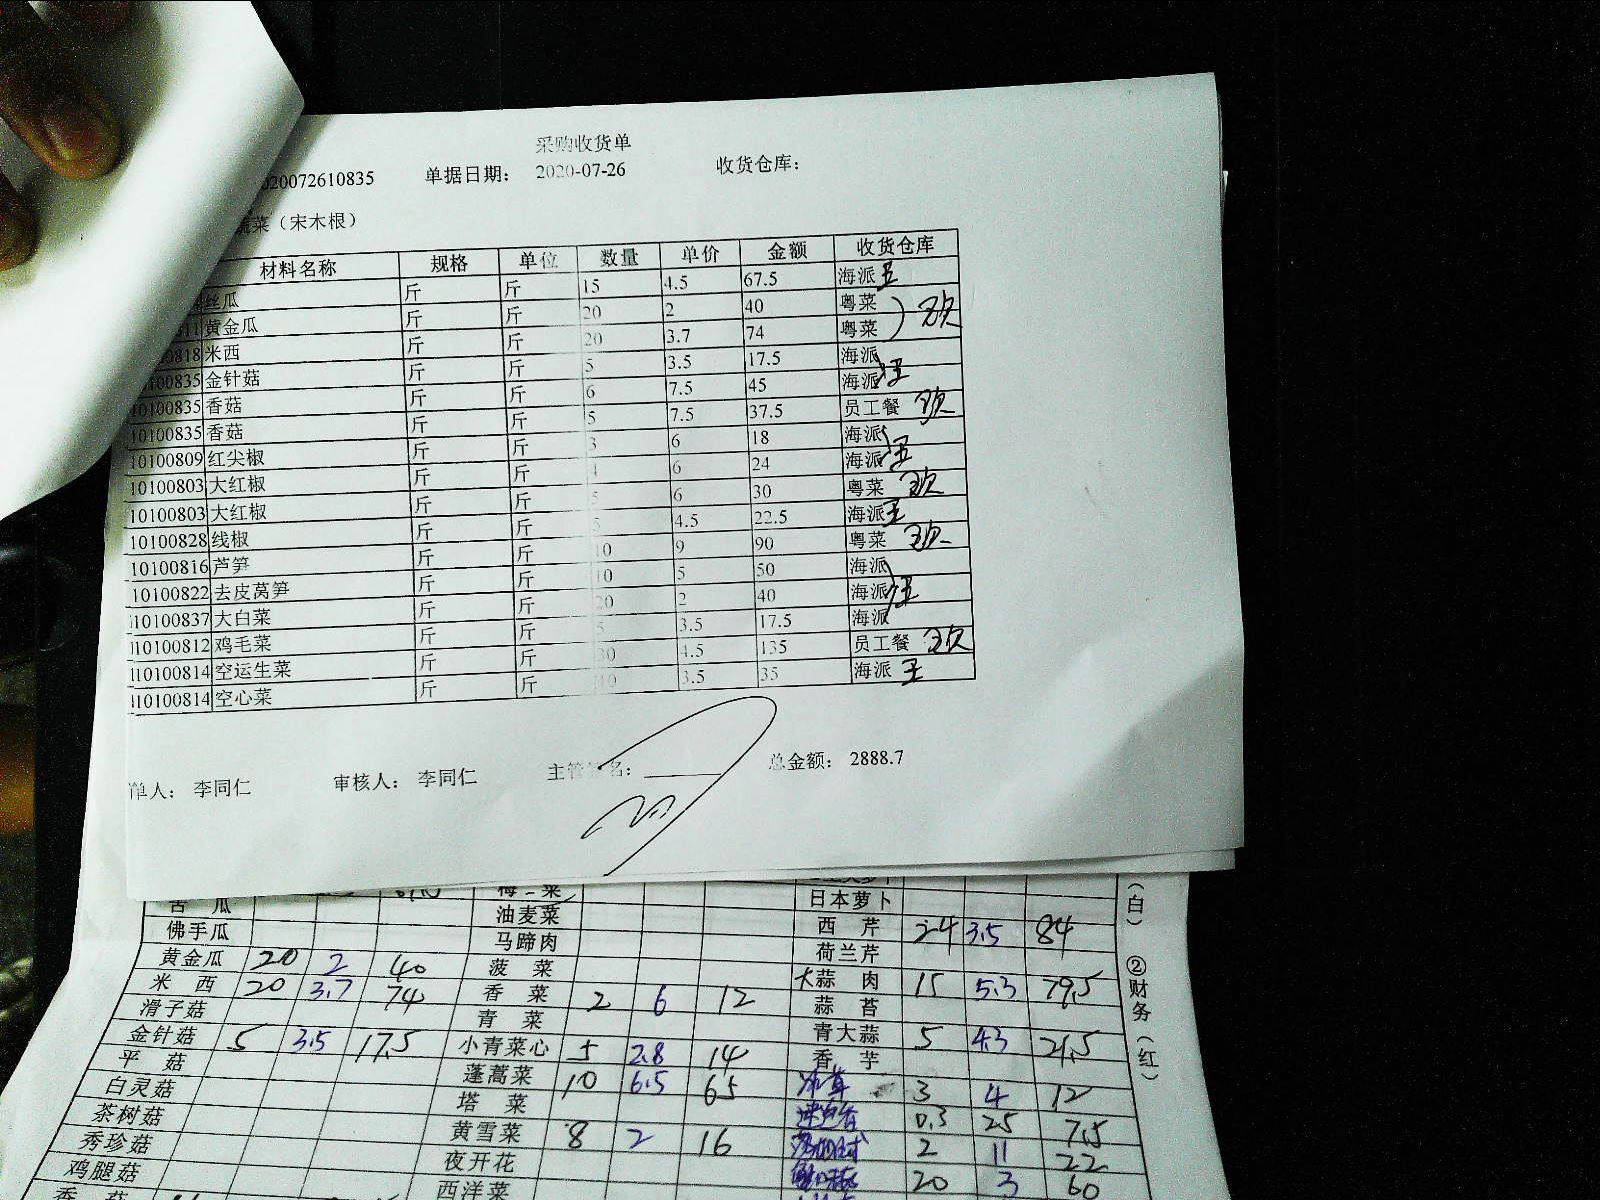 采购收货单
020072610835 单据日期： 2020-07-26 收货仓库：
蔬菜（宋木根）
材料名称 规格 单位 数量 单价 金额 收货仓库
丝瓜 斤 斤 15 4.5 67.5 海派 王
11 黄金瓜 斤 斤 20 2 40 粤菜
0818 米西 斤 斤 20 3.7 74 粤菜
100835 金针菇 斤 斤 5 3.5 17.5 海派
10100835 香菇 斤 斤 6 7.5 45 海派 王
10100835 香菇 斤 斤 5 7.5 37.5 员工餐
10100809 红尖椒 斤 斤 3 6 18 海派
10100803 大红椒 斤 斤 4 6 24 海派 王
10100803 大红椒 斤 斤 5 6 30 粤菜
10100828 线椒 斤 斤 5 4.5 22.5 海派 王
10100816 芦笋 斤 斤 10 9 90 粤菜
10100822 去皮莴笋 斤 斤 10 5 50 海派
10100837 大白菜 斤 斤 20 2 40 海派 王
10100812 鸡毛菜 斤 斤 5 3.5 17.5 海派
10100814 空运生菜 斤 斤 30 4.5 135 员工餐
10100814 空心菜 斤 斤 10 3.5 35 海派 王
单人： 李同仁 审核人： 李同仁 主管签名： 总金额： 2888.7
苦瓜 油麦菜 日本萝卜
佛手瓜 马蹄肉 西芹 24 3.5 84
黄金瓜 20 2 40 菠菜 荷兰芹
米西 20 3.7 74 香菜 2 6 12 大蒜肉 15 5.3 79.5
滑子菇 青菜 蒜苔
金针菇 5 3.5 17.5 小青菜心 5 2.8 14 青大蒜 5 4.3 21.5
平菇 蓬蒿菜 10 6.5 65 香芋
白灵菇 塔菜 冰草 3 4 12
茶树菇 黄雪菜 8 2 16 0.3 25 7.5
秀珍菇 夜开花 2 11 22
鸡腿菇 西洋菜 20 3 60
香菇
（白）
②财务（红）